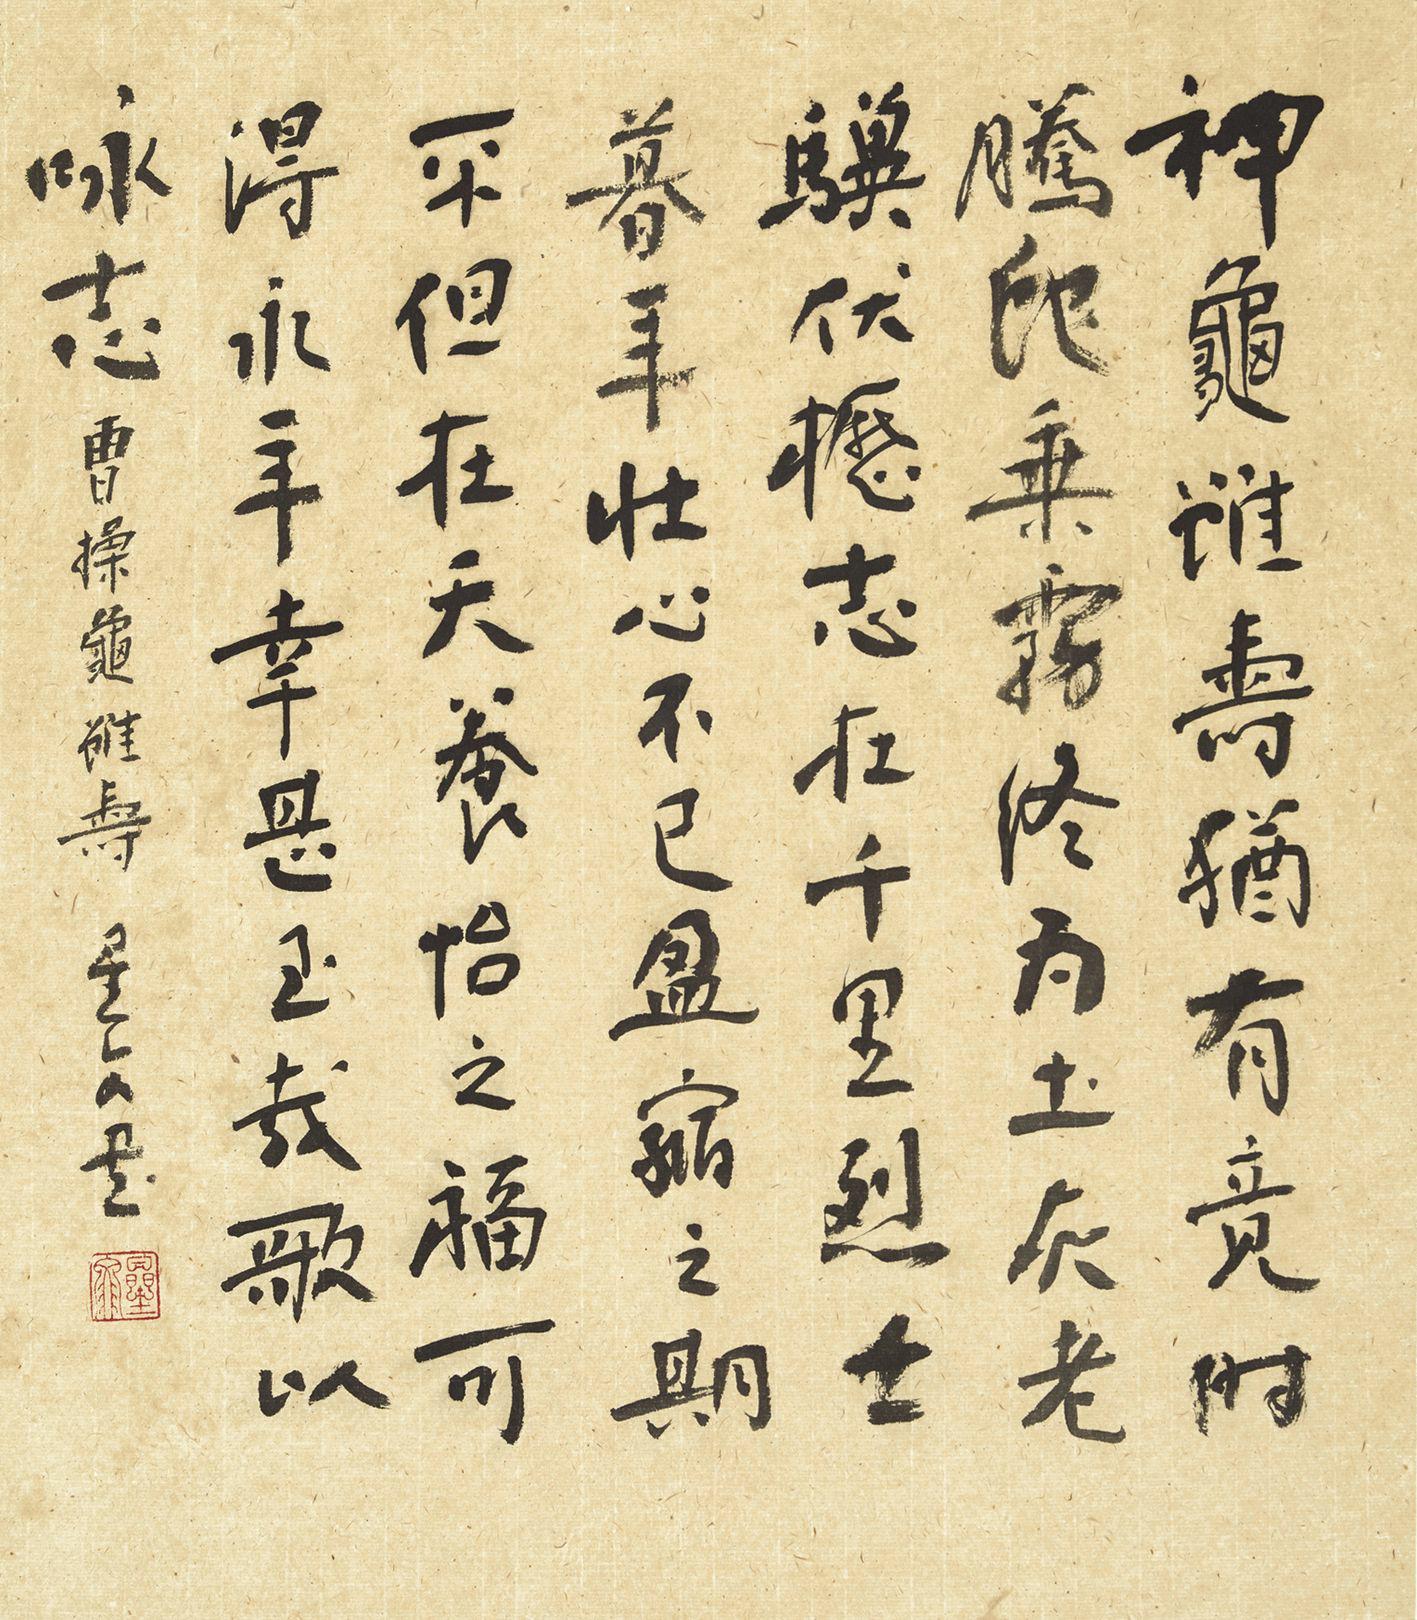 神龜雖壽猶有竟時
騰蛇乘霧終為土灰老
驥伏櫪志在千里烈士
暮年壯心不已盈縮之期
不但在天養怡之福可
得永年幸甚至哉歌以
咏志 曹操龜雖壽